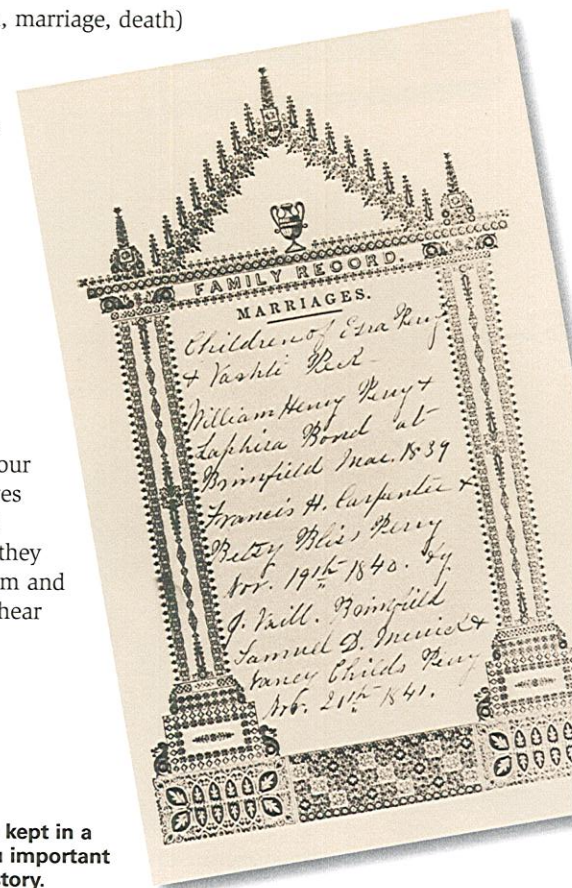 , marriage, death)
FAMILY RECORD.
MARRIAGES.
Children of Esra Perry
+ Vashti Peck
William Henry Perry +
Saphira Bond at
Brimfield Mar. 1839
Francis H. Carpenter +
Betsy Bliss Perry
Nov. 19th 1840. by
J. Vaill. Brimfield
Samuel D. Merrick +
Nancy Childs Perry
Nov. 21th 1841.
our
ves
they
m and
hear
kept in a
u important
story.